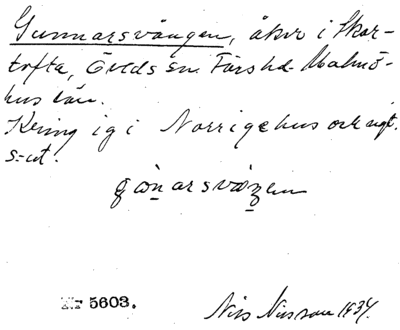 Gunnarsvången, åker i Skar-
tofta, Öveds sn. Färs hd. Malmö-
hus län.
Kring ig i Norrigehus och sigt.
s=ut.
gɷnarsvaɳen
Nr 5603.
Nils Nilsson 1934.